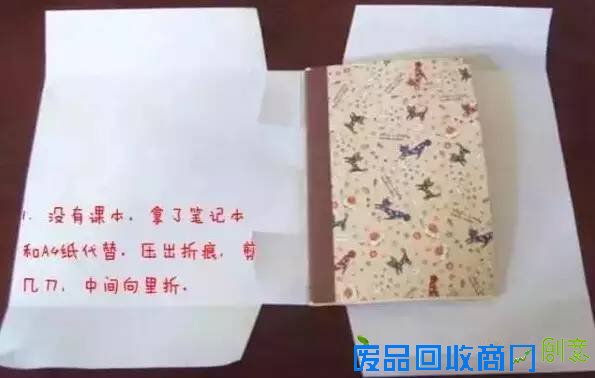 1. 没有课本，拿了笔记本
和A4纸代替。压出折痕，剪
几刀，中间向里折。
废品回收商网
创意